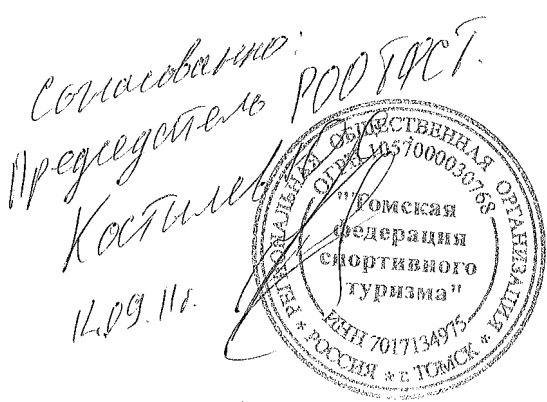 Согласовано:
Председатель РОО ТФСТ.
Костылев
12.09.11г.
* РЕГИОНАЛЬНАЯ ОБЩЕСТВЕННАЯ ОРГАНИЗАЦИЯ *
ОГРН 1057000030768
"Томская
федерация
спортивного
туризма"
ИНН 7017134975
РОССИЯ * г. ТОМСК